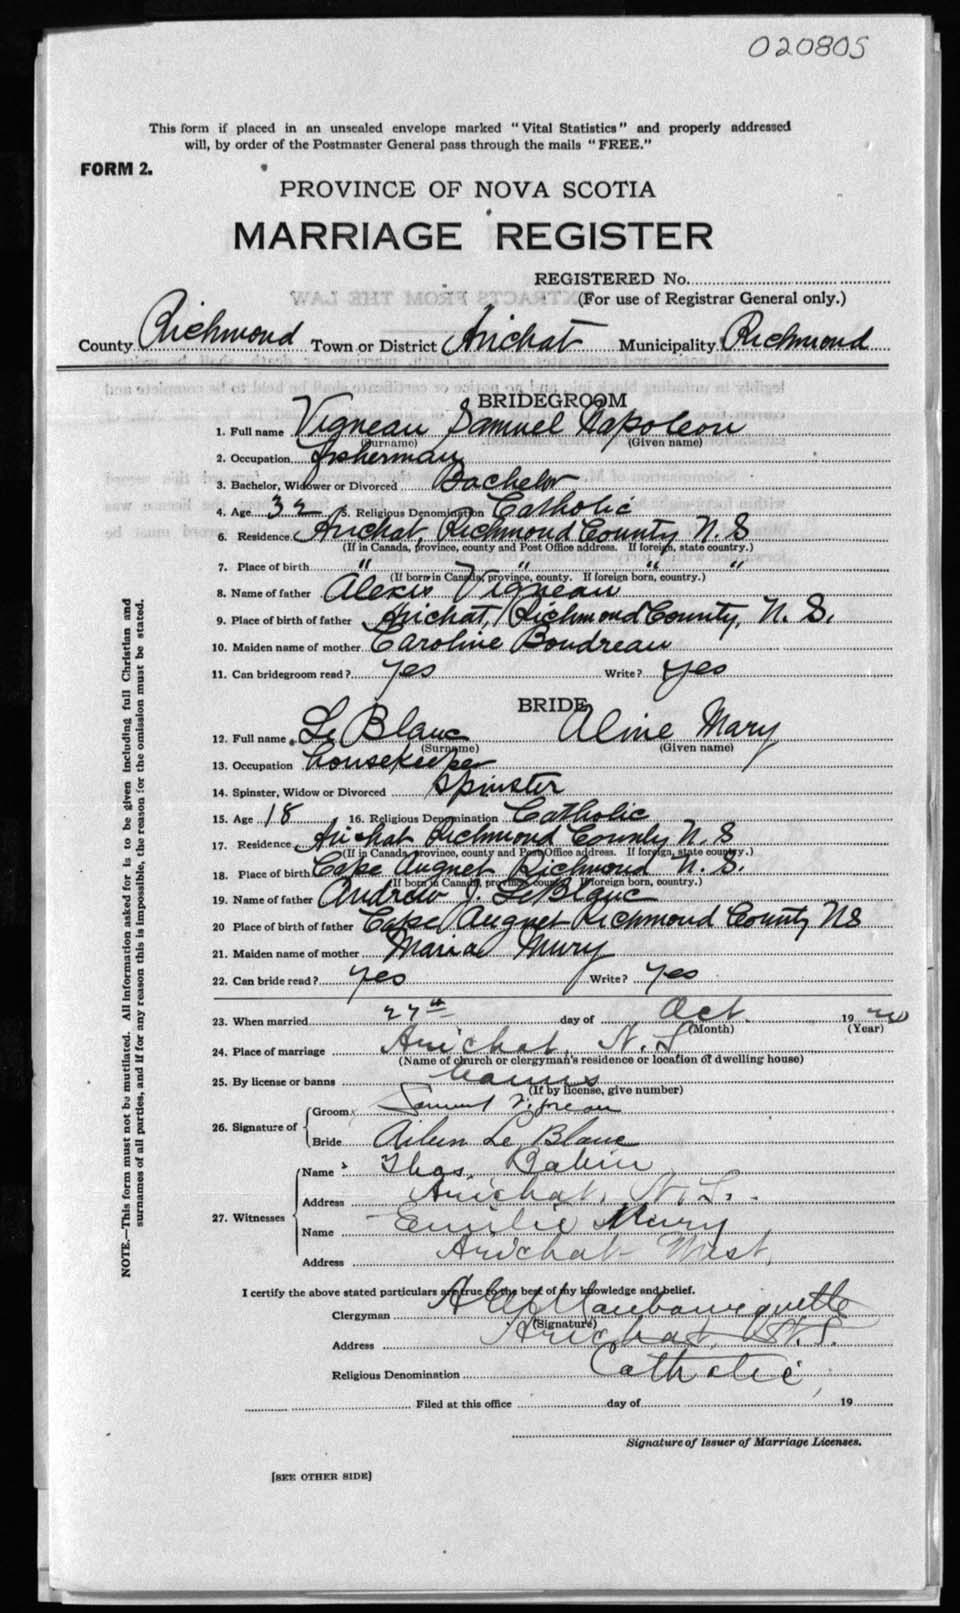 020805
This form if placed in an unsealed envelope marked "Vital Statistics" and properly addressed
will, by order of the Postmaster General pass through the mails "FREE."
FORM 2.
PROVINCE OF NOVA SCOTIA
MARRIAGE REGISTER
REGISTERED No.
(For use of Registrar General only.)
County Richmond Town or District Arichat Municipality Richmond
BRIDEGROOM
1. Full name Vigneau Samuel Napoleon
(Surname) (Given name)
2. Occupation fisherman
3. Bachelor, Widower or Divorced Bachelor
4. Age 32 5. Religious Denomination Catholic
6. Residence Arichat, Richmond County N.S
(If in Canada, province, county and Post Office address. If foreign, state country.)
7. Place of birth " " " "
(If born in Canada, province, county. If foreign born, country.)
8. Name of father Alexis Vigneau
9. Place of birth of father Arichat, Richmond County, N.S.
10. Maiden name of mother Caroline Boudreau
11. Can bridegroom read? Yes Write? Yes
BRIDE
12. Full name Le Blanc Aline Mary
(Surname) (Given name)
13. Occupation housekeeper
14. Spinster, Widow or Divorced Spinster
15. Age 18 16. Religious Denomination Catholic
17. Residence Arichat Richmond County N.S
(If in Canada, province, county and Post Office address. If foreign, state country.)
18. Place of birth Cape Auguet Richmond N.S.
(If born in Canada, province, county. If foreign born, country.)
19. Name of father Andrew J. LeBlanc
20 Place of birth of father Cape Auguet Richmond County NS
21. Maiden name of mother Maria Mury
22. Can bride read? Yes Write? Yes
23. When married 27th day of Oct. 19
(Month) (Year)
24. Place of marriage Arichat, N.S.
(Name of church or clergyman's residence or location of dwelling house)
25. By license or banns banns
(If by license, give number)
26. Signature of Groom Samuel Vigneau
Bride Ailen Le Blanc
27. Witnesses Name Thos. Babin
Address Arichat, N.S.
Name Emilie Mury
Address Arichat West,
I certify the above stated particulars are true to the best of my knowledge and belief.
Clergyman
(Signature)
Address Arichat, N.S.
Religious Denomination Catholic
Filed at this office day of 19
Signature of Issuer of Marriage Licenses.
[SEE OTHER SIDE]
NOTE.—This form must not be mutilated. All information asked for is to be given including full Christian and
surnames of all parties, and if for any reason this is impossible, the reason for the omission must be stated.